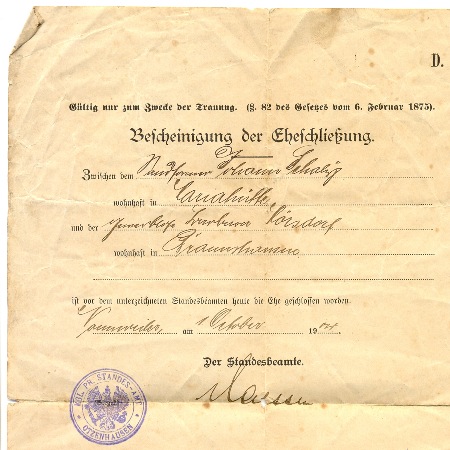 D.
Gültig nur zum Zwecke der Trauung. (§. 82 des Gesetzes vom 6. Februar 1875).
Bescheinigung der Eheschließung.
Zwischen dem Sandformer Johann
wohnhaft in Mariahütte
und der Barbara
wohnhaft in Braunshausen
ist vor dem unterzeichneten Standesbeamten heute die Ehe geschlossen worden.
am 1 October 19
Der Standesbeamte.
KGL. PR. STANDES-AMT
OTZENHAUSEN